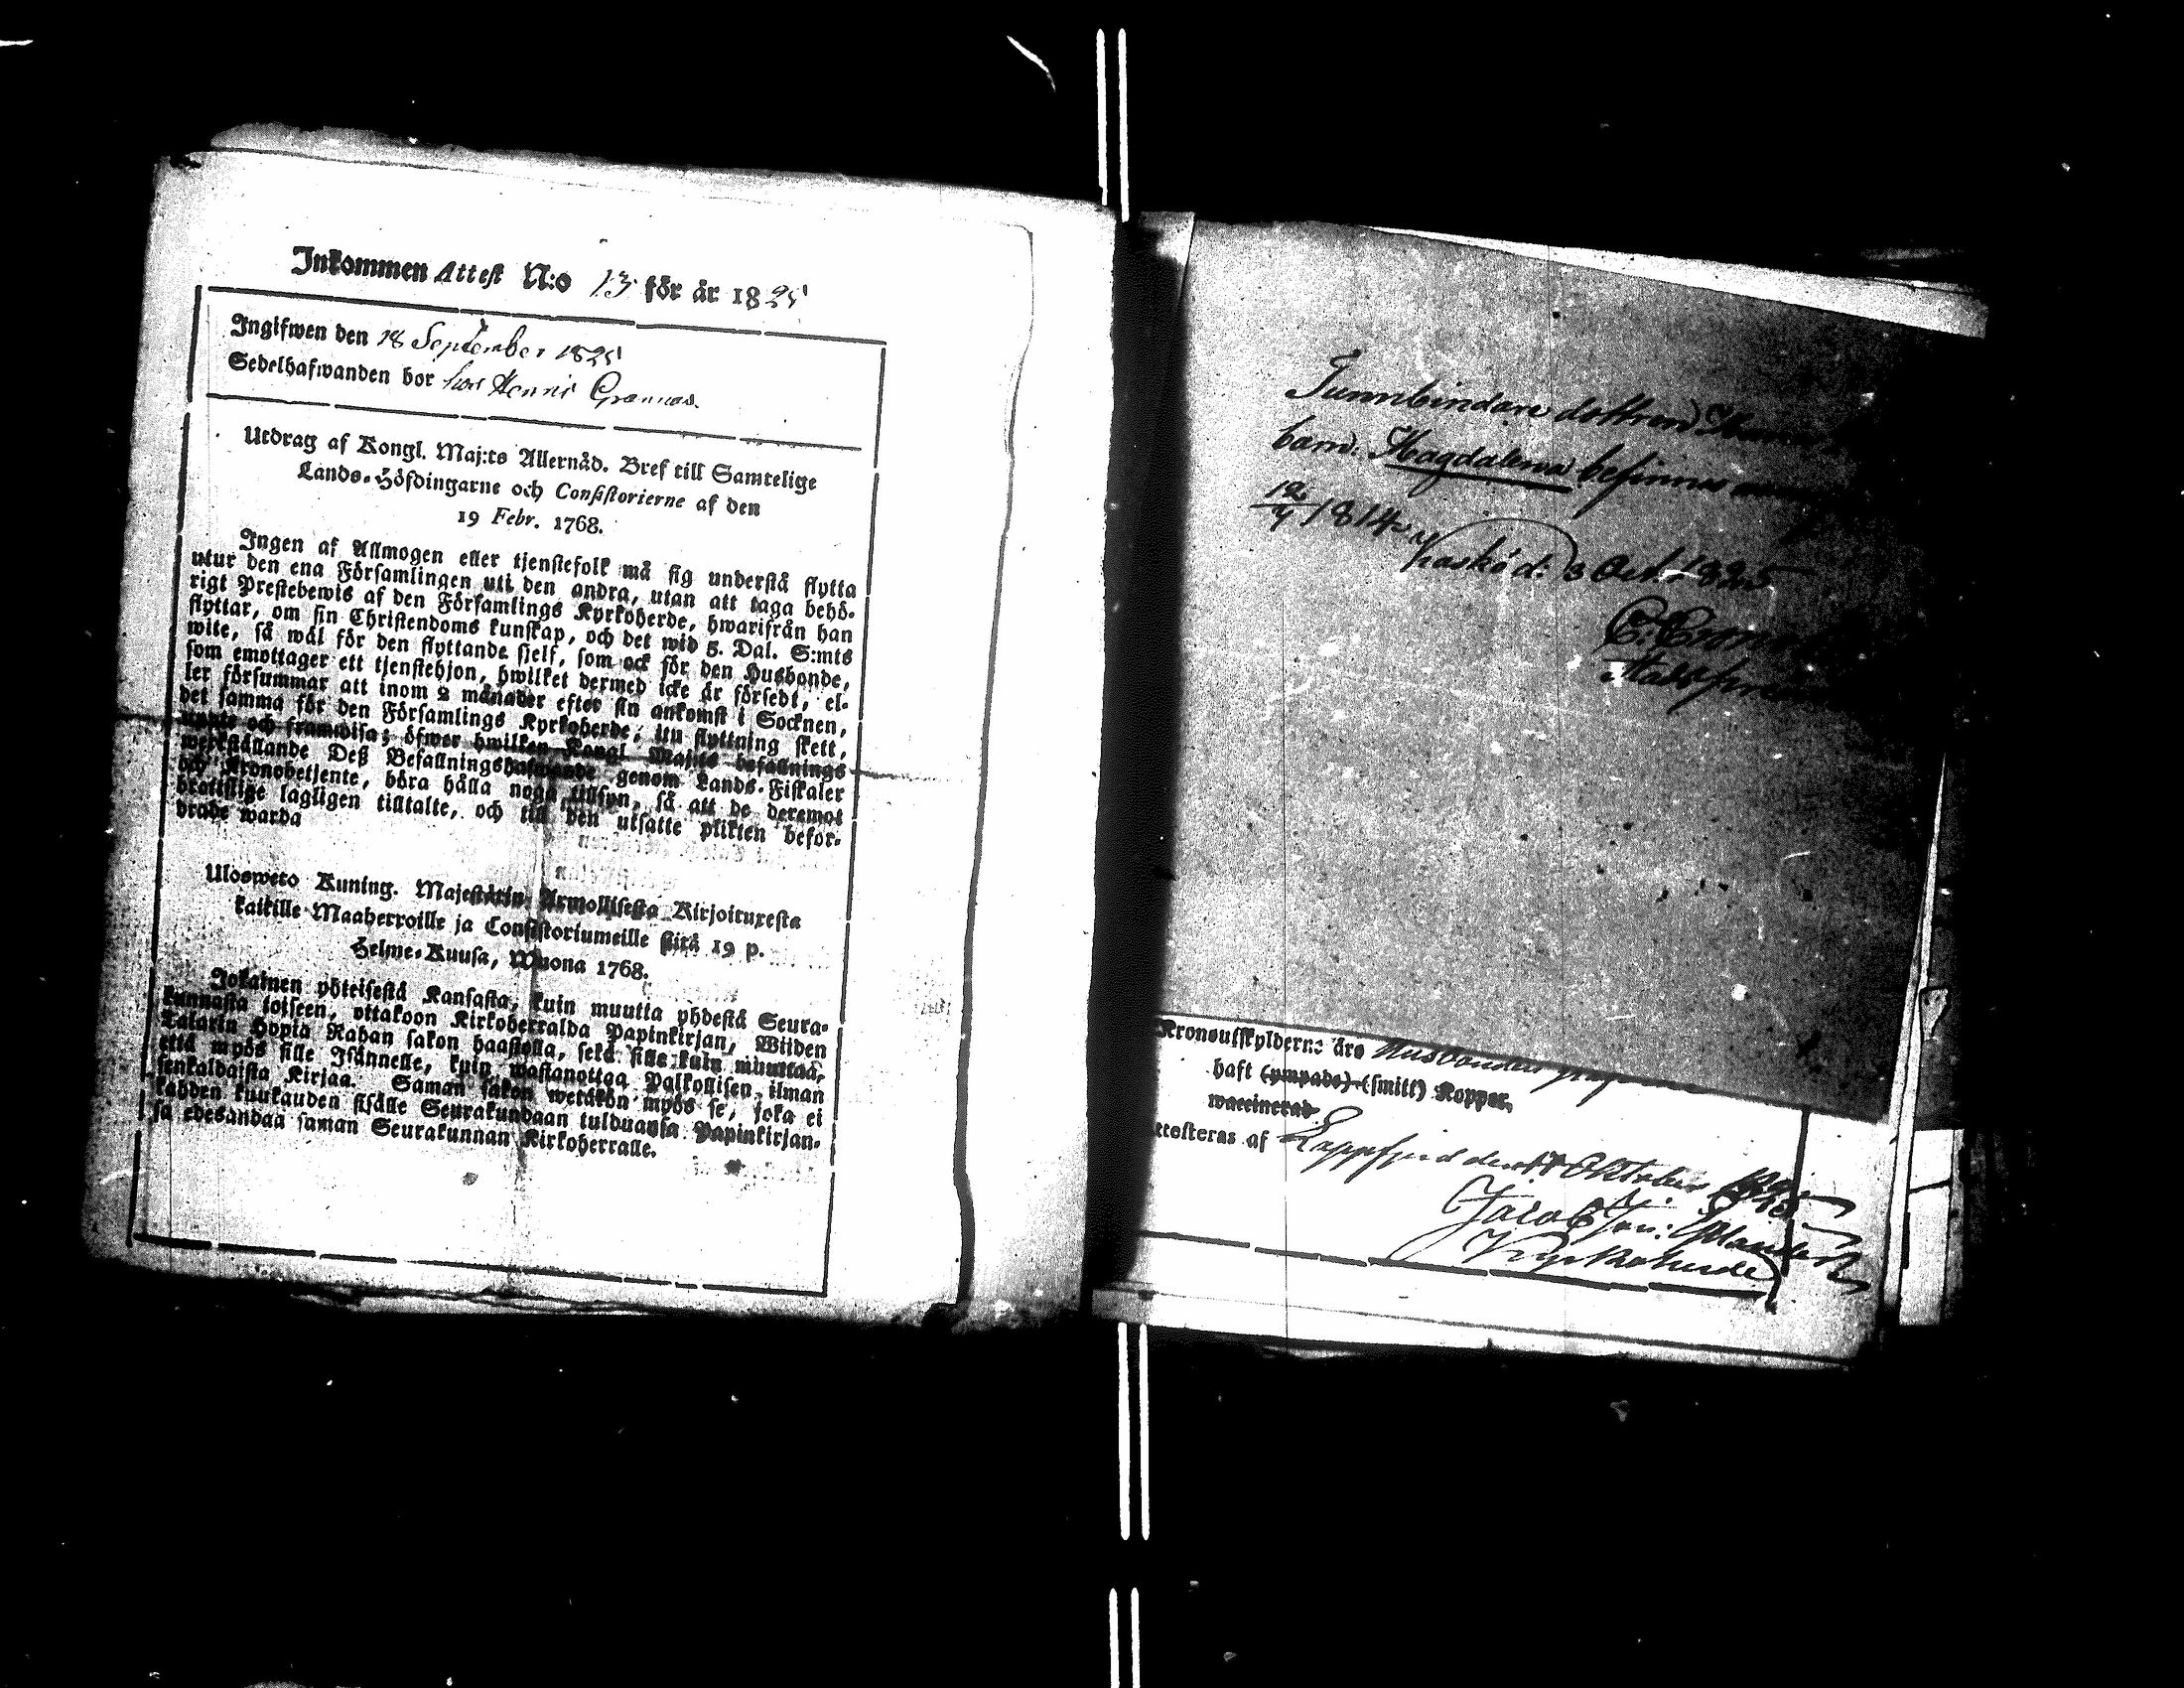 Inkommen Attest N:o 13 för år 1825
Ingifwen den 18 September 1825
Sedelhafwanden bor hos Henric Grannas.
Utdrag af Kongl. Maj:ts Allernåd. Bref till Samtelige
Lands-Höfdingarne och Consistorierne af den
19 Febr. 1768.
Ingen af Allmogen eller tjenstefolk må sig understå flytta
utur den ena Församlingen uti den andra, utan att taga behö-
rigt Prestebewis af den Församlings Kyrkoherde, hwarifrån han
flyttar, om sin Christendoms kunskap, och det wid 5. Dal. S:mts
wite, så wäl för den flyttande sjelf, som ock för den Husbonde,
som emottager ett tjenstehjon, hwilket dermed icke är försedt, el-
ler försummar att inom 2 månader efter sin ankomst i Socknen,
det samma för den Församlings Kyrkoherde, itu flyttning skett,
uppte och framwisa; öfwer hwilken Kongl. Maj:ts befallnings
werkställande Deß Befallningshafwande genom Lands-Fiskaler
och Kronobetjente, böra hålla noga tillsyn, så att de deremot
brottslige lagligen tilltalte, och till den utsatte plikten befor-
drade warda
Ulosweto Kuning. Majestätin Armollisesta Kirjoituxesta
kaikille Maaherroille ja Consistoriumeille siitä 19 p.
Helme-Kuusa, Wuona 1768.
Jokainen yhteisestä Kansasta, kuin muutta yhdestä Seura-
kunnasta toiseen, ottakoon Kirkoherralda Papinkirjan, Wiiden
Talarin Hopia Rahan sakon haastolla, sekä sille kuin muuttaa,
että myös sille Isännelle, kuin wastanottaa Palkollisen ilman
senkaldaista Kirjaa. Saman sakon wetäkön myös se, joka ei
kahden kuukauden sisälle Seurakundaan tulduansa Papinkirjan-
sa edesandaa saman Seurakunnan Kirkoherralle.
Tunnbindare dottren
barn: Magdalena befinnes
12/4 1814. Kaskö d: 3 Oct. 1825
Kronoutskylderne äro Husbonden
haft (ympade) (smitt) Koppor,
waccinerad
ttesteras af Lappfjerd den Oktober 1825
Kyrkoherde